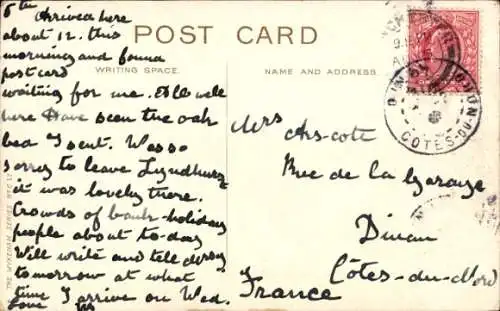 6th Arrived here
about 12. this
morning and found
postcard
waiting for me. All well
here Have seen the oak
bea I sent. Was so
sorry to leave Lyndhurst
it was lovely there.
Crowds of bank-holiday
people about to-day
Will write and tell
tomorrow at what
time I arrive on Wed.
Love
POST CARD
WRITING SPACE.
NAME AND ADDRESS.
THE WYKEHAM SERIES
Mrs Ars-cote
Rue de la Garaye
Dinan
Côtes-du-Nord
France
DINAN
CÔTES-DU-NORD